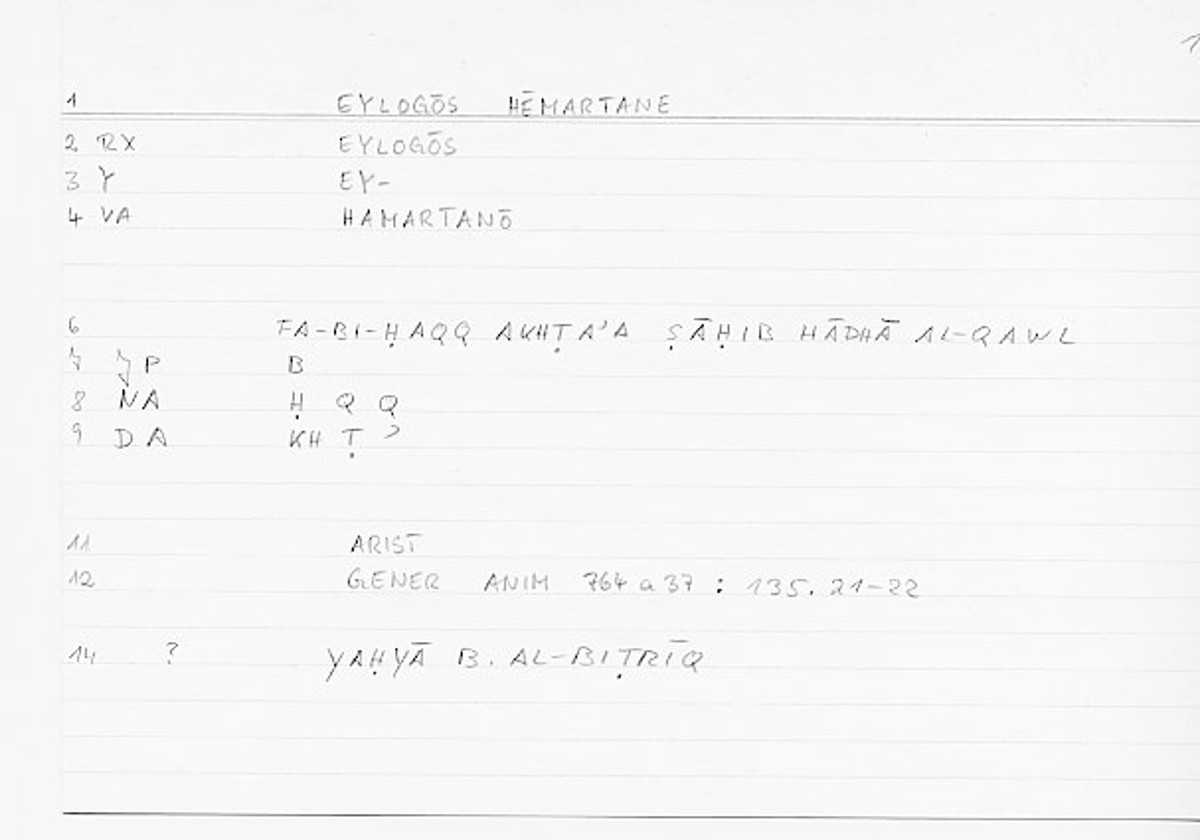 1
1 EYLOGŌS HĒMARTANE
2 RX EYLOGŌS
3 Y EY-
4 VA HAMARTANŌ
6 FA-BI-ḤAQQ AKHṬAʾA ṢĀḤIB HĀDHĀ AL-QAWL
7 JP B
8 NA Ḥ Q Q
9 DA KH Ṭ ʾ
11 ARIST
12 GENER ANIM 764 a 37 : 135. 21-22
14 ? YAḤYĀ B. AL-BIṬRĪQ